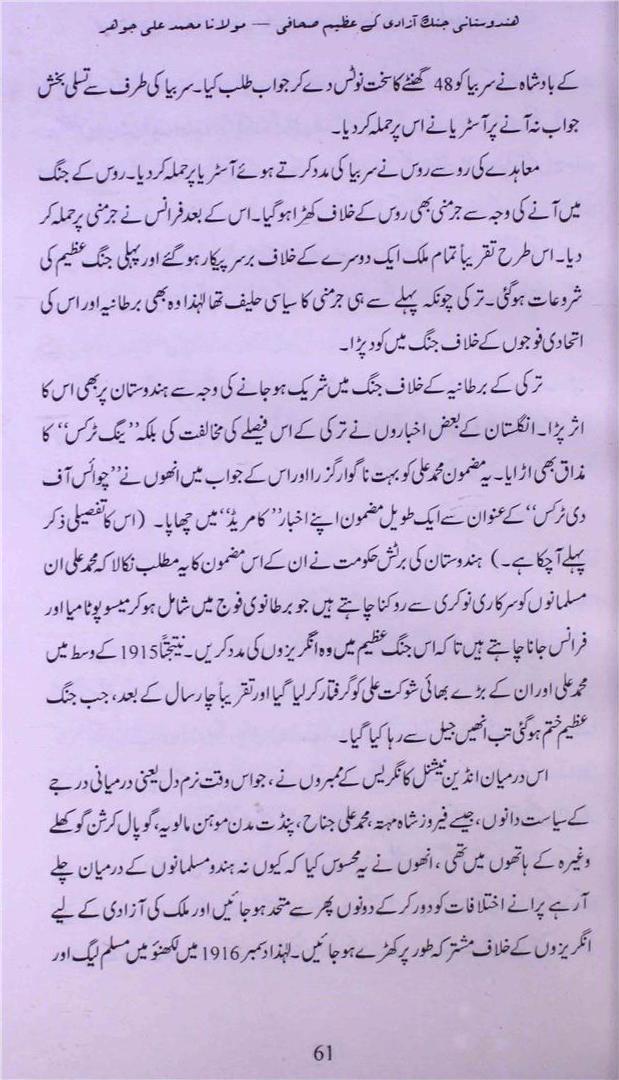 ہندوستانی جنگ آزادی کے عظیم صحافی — مولانا محمد علی جوہر
کے بادشاہ نے سربیا کو 48 گھنٹے کا سخت نوٹس دے کر جواب طلب کیا۔ سربیا کی طرف سے تسلی بخش
جواب نہ آنے پر آسٹریا نے اس پر حملہ کر دیا۔
معاہدے کی رو سے روس نے سربیا کی مدد کرتے ہوئے آسٹریا پر حملہ کر دیا۔ روس کے جنگ
میں آنے کی وجہ سے جرمنی بھی روس کے خلاف کھڑا ہو گیا۔ اس کے بعد فرانس نے جرمنی پر حملہ کر
دیا۔ اس طرح تقریباً تمام ملک ایک دوسرے کے خلاف برسر پیکار ہو گئے اور پہلی جنگ عظیم کی
شروعات ہو گئی۔ ترکی چونکہ پہلے سے ہی جرمنی کا سیاسی حلیف تھا لہٰذا وہ بھی برطانیہ اور اس کی
اتحادی فوجوں کے خلاف جنگ میں کود پڑا۔
ترکی کے برطانیہ کے خلاف جنگ میں شریک ہو جانے کی وجہ سے ہندوستان پر بھی اس کا
اثر پڑا۔ انگلستان کے بعض اخباروں نے ترکی کے اس فیصلے کی مخالفت کی بلکہ ’’ینگ ٹرکس‘‘ کا
مذاق بھی اڑایا۔ یہ مضمون محمد علی کو بہت ناگوار گزرا اور اس کے جواب میں انھوں نے ’’چوائس آف
دی ٹرکس‘‘ کے عنوان سے ایک طویل مضمون اپنے اخبار ’’کامریڈ‘‘ میں چھاپا۔ (اس کا تفصیلی ذکر
پہلے آ چکا ہے۔) ہندوستان کی برٹش حکومت نے ان کے اس مضمون کا یہ مطلب نکالا کہ محمد علی ان
مسلمانوں کو سرکاری نوکری سے روکنا چاہتے ہیں جو برطانوی فوج میں شامل ہو کر میسوپوٹامیا اور
فرانس جانا چاہتے ہیں تاکہ اس جنگ عظیم میں وہ انگریزوں کی مدد کریں۔ نتیجتاً 1915 کے وسط میں
محمد علی اور ان کے بڑے بھائی شوکت علی کو گرفتار کر لیا گیا اور تقریباً چار سال کے بعد، جب جنگ
عظیم ختم ہو گئی تب انھیں جیل سے رہا کیا گیا۔
اس درمیان انڈین نیشنل کانگریس کے ممبروں نے، جو اس وقت نرم دل یعنی درمیانی درجے
کے سیاست دانوں، جیسے فیروز شاہ مہتہ، محمد علی جناح، پنڈت مدن موہن مالویہ، گوپال کرشن گوکھلے
وغیرہ کے ہاتھوں میں تھی، انھوں نے یہ محسوس کیا کہ کیوں نہ ہندو مسلمانوں کے درمیان چلے
آ رہے پرانے اختلافات کو دور کر کے دونوں پھر سے متحد ہو جائیں اور ملک کی آزادی کے لیے
انگریزوں کے خلاف مشترکہ طور پر کھڑے ہو جائیں۔ لہٰذا دسمبر 1916 میں لکھنؤ میں مسلم لیگ اور
61